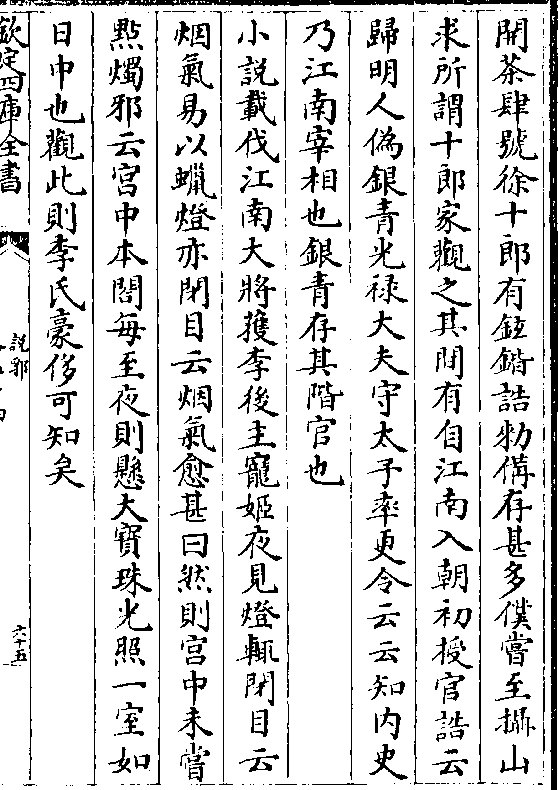 開茶肆號徐十郎有鉉鍇誥勅備存甚多僕嘗至攝山
求所謂十郎家觀之其間有自江南入朝初授官誥云
歸明人偽銀青光禄大夫守太子率更令云云知内史
乃江南宰相也銀青存其階官也
小説載伐江南大將獲李後主寵姬夜見燈輒閉目云
烟氣易以蠟燈亦閉目云烟氣愈甚曰然則宫中未嘗
點燭邪云宫中本閣每至夜則懸大寳珠光照一室如
日中也觀此則李氏豪侈可知矣
欽定四庫全書
説郛
六十五